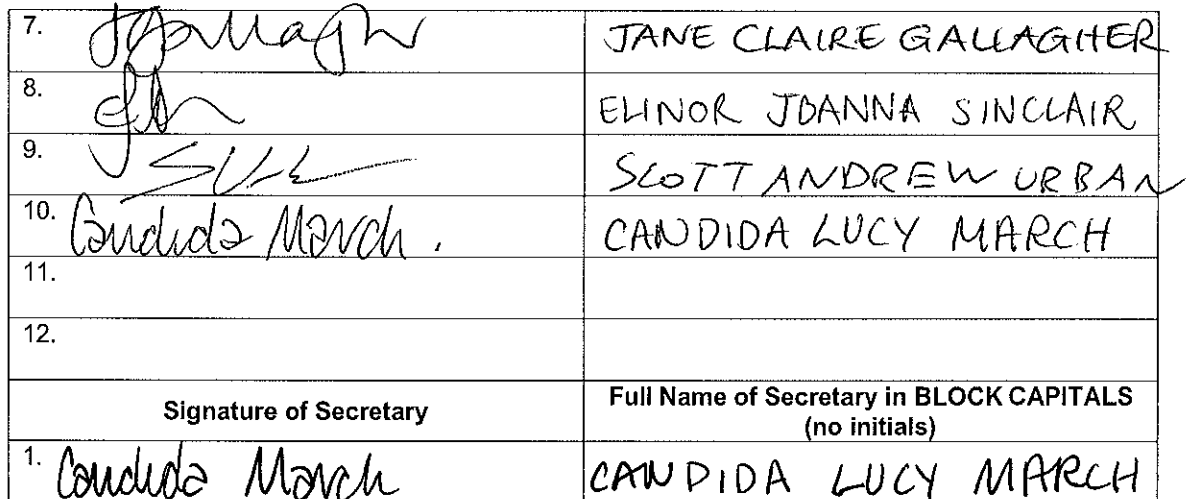 7. JGallagher JANE CLAIRE GALLAGHER
8. ELINOR JOANNA SINCLAIR
9. SCOTT ANDREW URBAN
10. Candida March. CANDIDA LUCY MARCH
11.
12.
Signature of Secretary Full Name of Secretary in BLOCK CAPITALS
(no initials)
1. Candida March CANDIDA LUCY MARCH